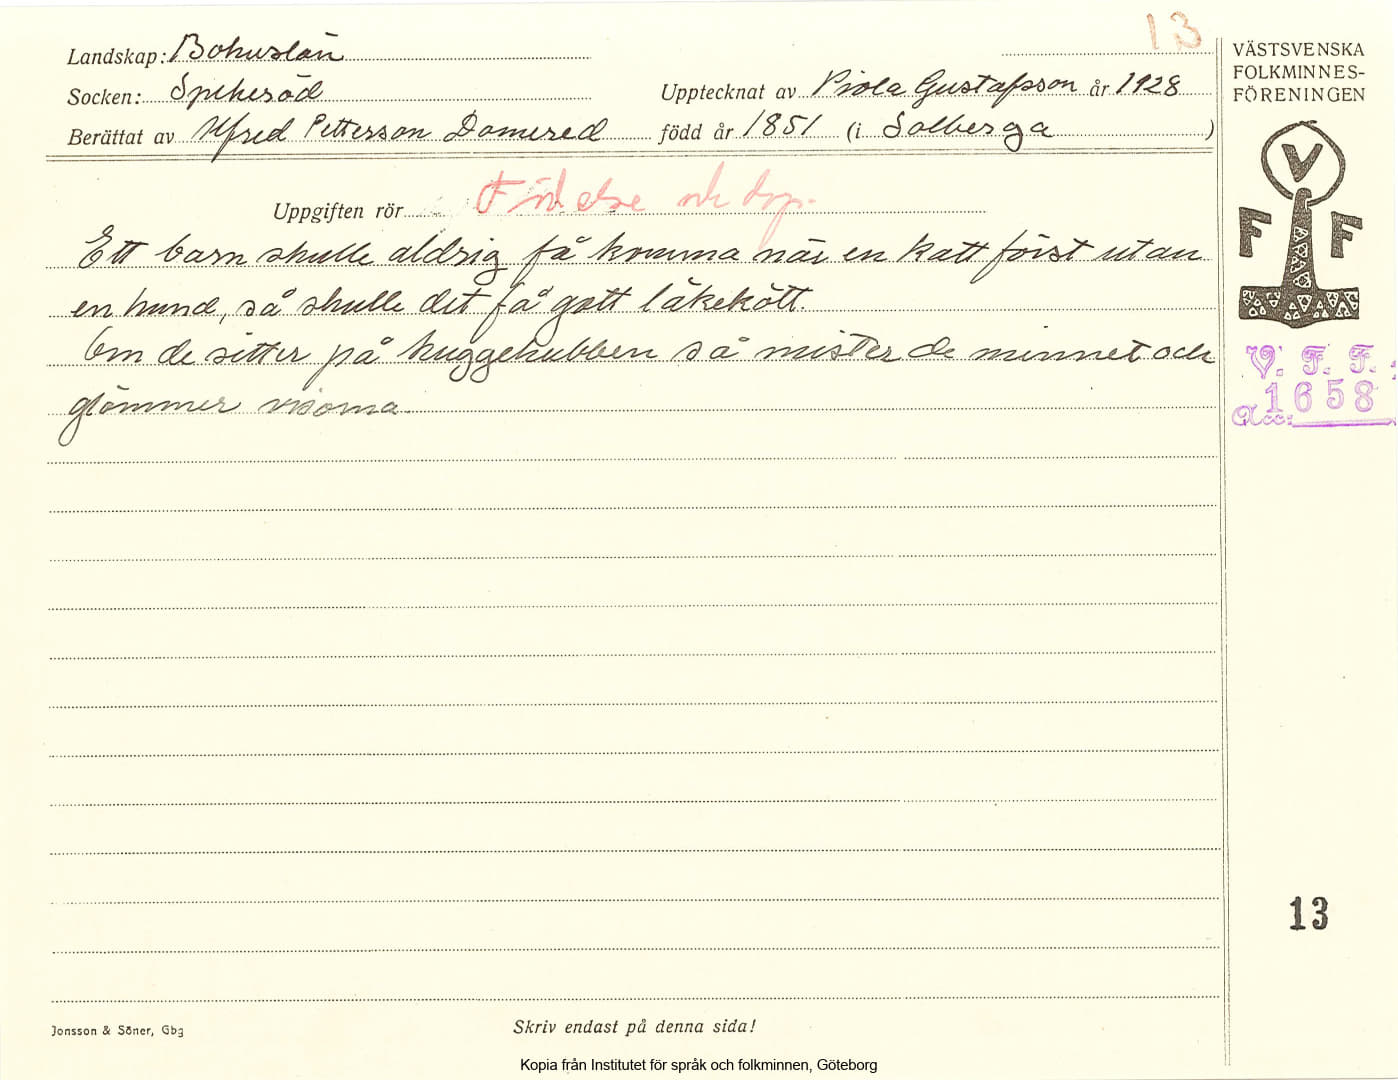 13
Landskap: Bohuslän
Socken: Spekeröd
Upptecknat av Viola Gustafsson år 1928
Berättat av Alfred Petterson Damered född år 1851 (i Solberga )
Uppgiften rör Födelse och dop.
Ett barn skulle aldrig få komma när en katt först utan
en hund, så skulle det få gott läkekött.
Om de sitter på huggekubben så mister de minnet och
glömmer visorna.
VÄSTSVENSKA
FOLKMINNES-
FÖRENINGEN
V
F F
V. F. F.
Acc: 1658
13
Jonsson & Söner, Gbg
Skriv endast på denna sida!
Kopia från Institutet för språk och folkminnen, Göteborg